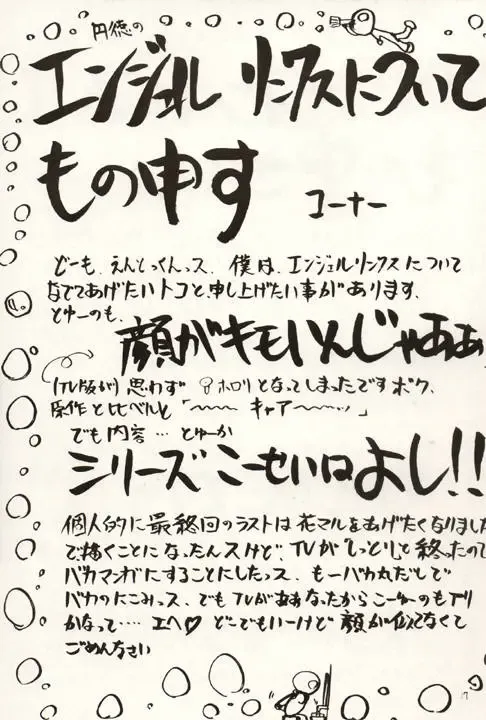 円徳の
エンジェル リンクスについて
もの申す コーナー
どーも、えんとっくんっス、僕は、エンジェルリンクスについて
なでてあげたいトコと、申し上げたい事があります、
とゆーのも、
顔がキモいんじゃああ
(TV版が) 思わず ホロリとなってしまったですボク、
原作と比べると「〜〜〜 キャア〜〜〜」
でも内容… とゆーか
シリーズこーせいはよし!!
個人的に最終回のラストは花マルをあげたくなりました
で描くことになったんスけど、TVが「しっとり」と終ったので
バカマンガにすることにしたっス、もーバカ丸だしで
バカのにこみっス、でもTVがああなったからこーゆーのもアリ
かなって‥‥エヘ♡ どーでもいーけど 顔が似てなくて
ごめんなさい